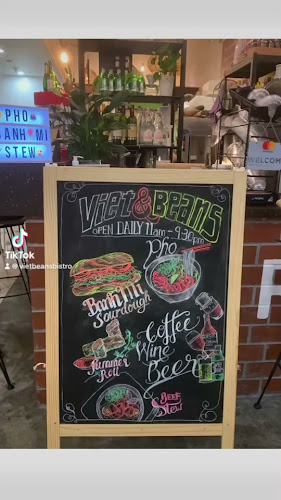 PHO
BANH MI
STEW
WELCOME
Viet & Beans
OPEN DAILY 11am - 9:30pm
Pho
Banh Mi
Sourdough
Coffee
Wine
Beer
Summer
Roll
Beef
Stew
TikTok
@vietbeansbistro